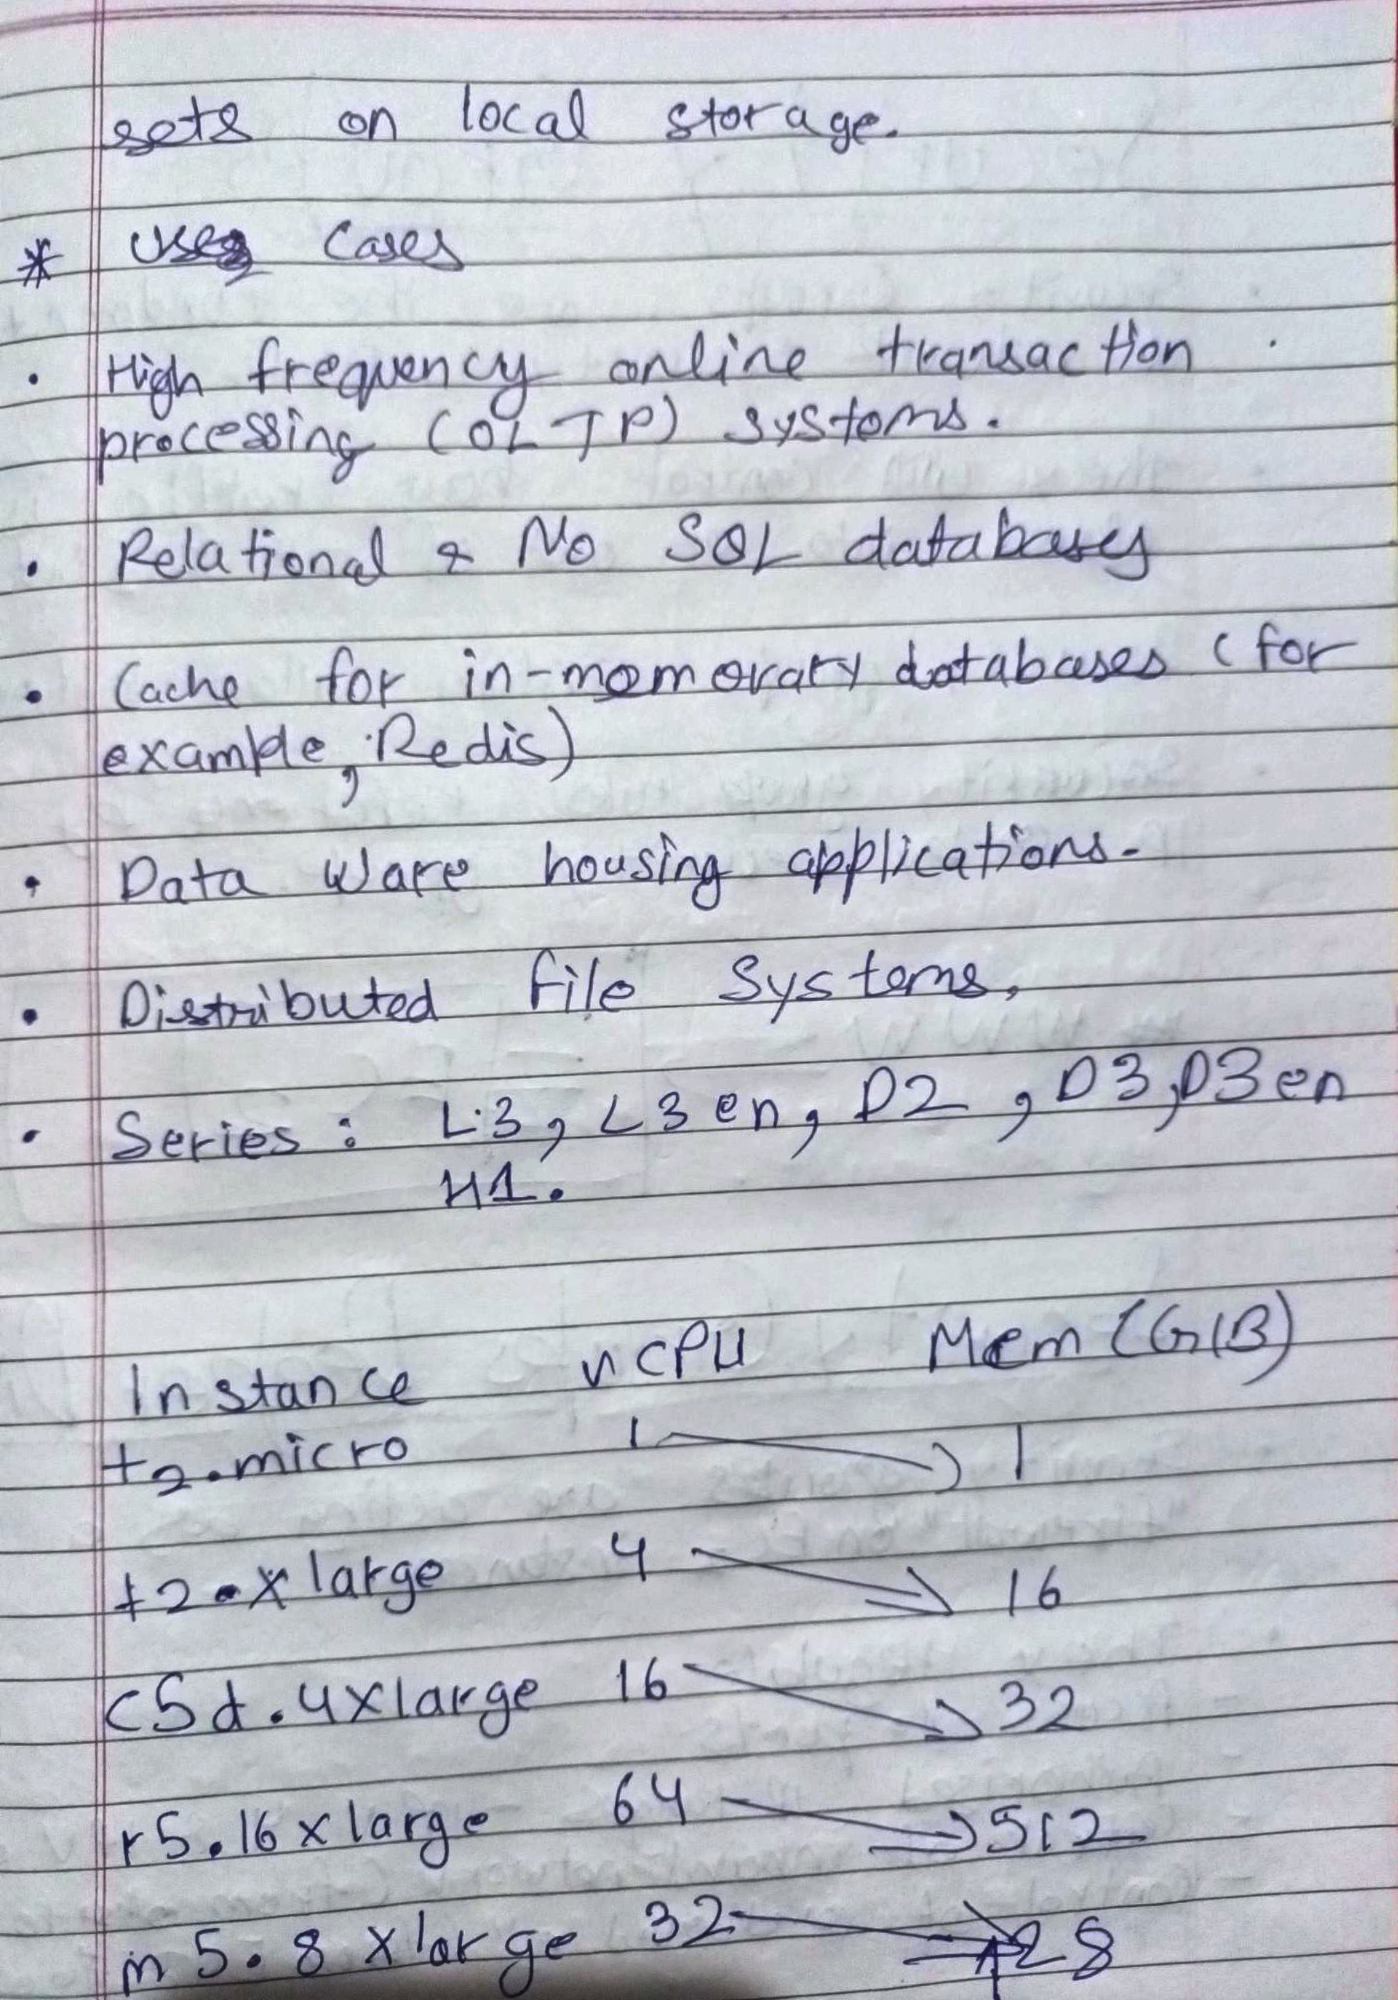 sets on local storage.
* Use Cases
· High frequency online transaction
processing (OLTP) systems.
· Relational & No SQL databases
· Cache for in-memorary databases (for
example, Redis)
· Data Ware housing applications.
· Distributed file Systems,
· Series : L3, L3en, D2, D3, D3en
H1.
Instance vCPU Mem (GiB)
t2.micro 1 → 1
t2.xlarge 4 → 16
c5d.4xlarge 16 → 32
r5.16xlarge 64 → 512
m5.8xlarge 32 → 128